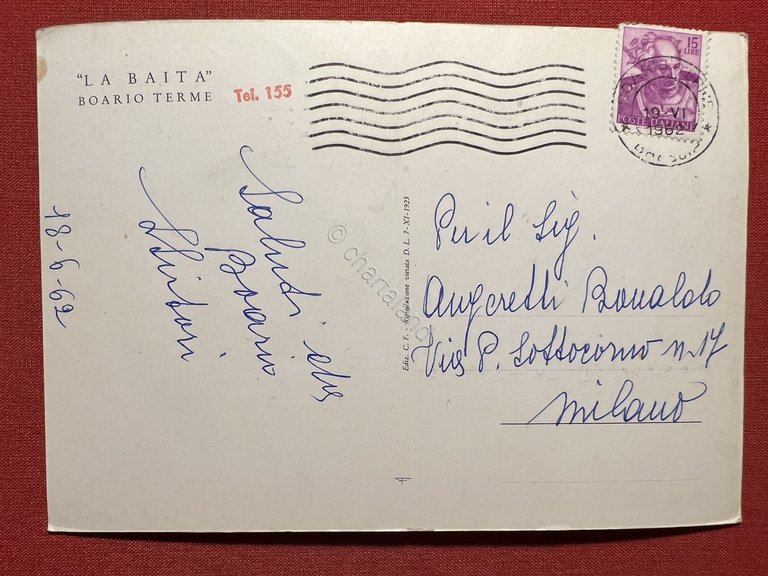 "LA BAITA"
BOARIO TERME
Tel. 155
15
LIRE
POSTE ITALIANE
19 VI
1962
18-6-62
Saluti da
Boario
Ediz. C. F. - Riproduzione vietata D. L. 7-XI-1925
© chartaland
Per il Sig.
Angeretti Bonaldo
Via P. Sottocorno n. 17
Milano